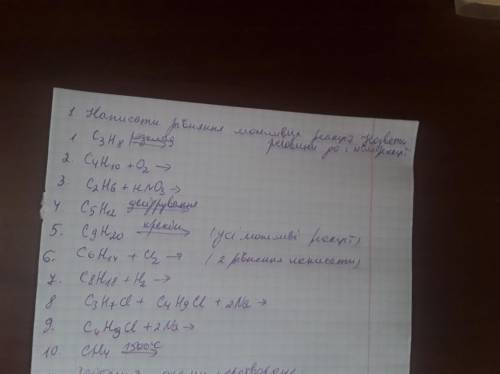 1 Написати рівняння можливих реакцій. Назвати
речовини до і після реакції
1. C3H8 розклад →
2. C4H10 + O2 →
3. C2H6 + HNO3 →
4 C5H12 дегідрування →
5. C9H20 крекінг → (усі можливі реакції)
6. C6H14 + Cl2 → (2 рівняння написати)
7. C8H18 + H2 →
8 C3H7Cl + C4H9Cl + 2Na →
9. C4H9Cl + 2Na →
10. CH4 1500°C →